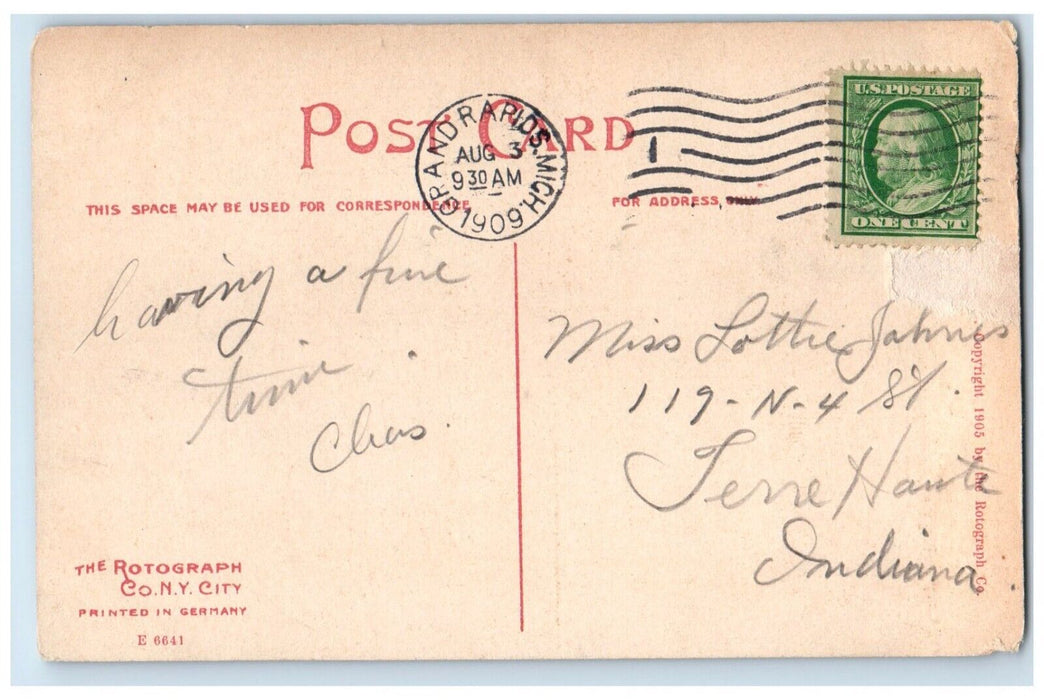 POST CARD
GRAND RAPIDS, MICH.
AUG 3
9 30 AM
1909
1
U.S. POSTAGE
ONE CENT
THIS SPACE MAY BE USED FOR CORRESPONDENCE
FOR ADDRESS ONLY
having a fine
time.
Chas.
Miss Lottie Johnes
119-N-4 St.
Terre Haute
Indiana.
THE ROTOGRAPH
CO. N.Y. CITY
PRINTED IN GERMANY
E 6641
Copyright 1905 by the Rotograph Co.